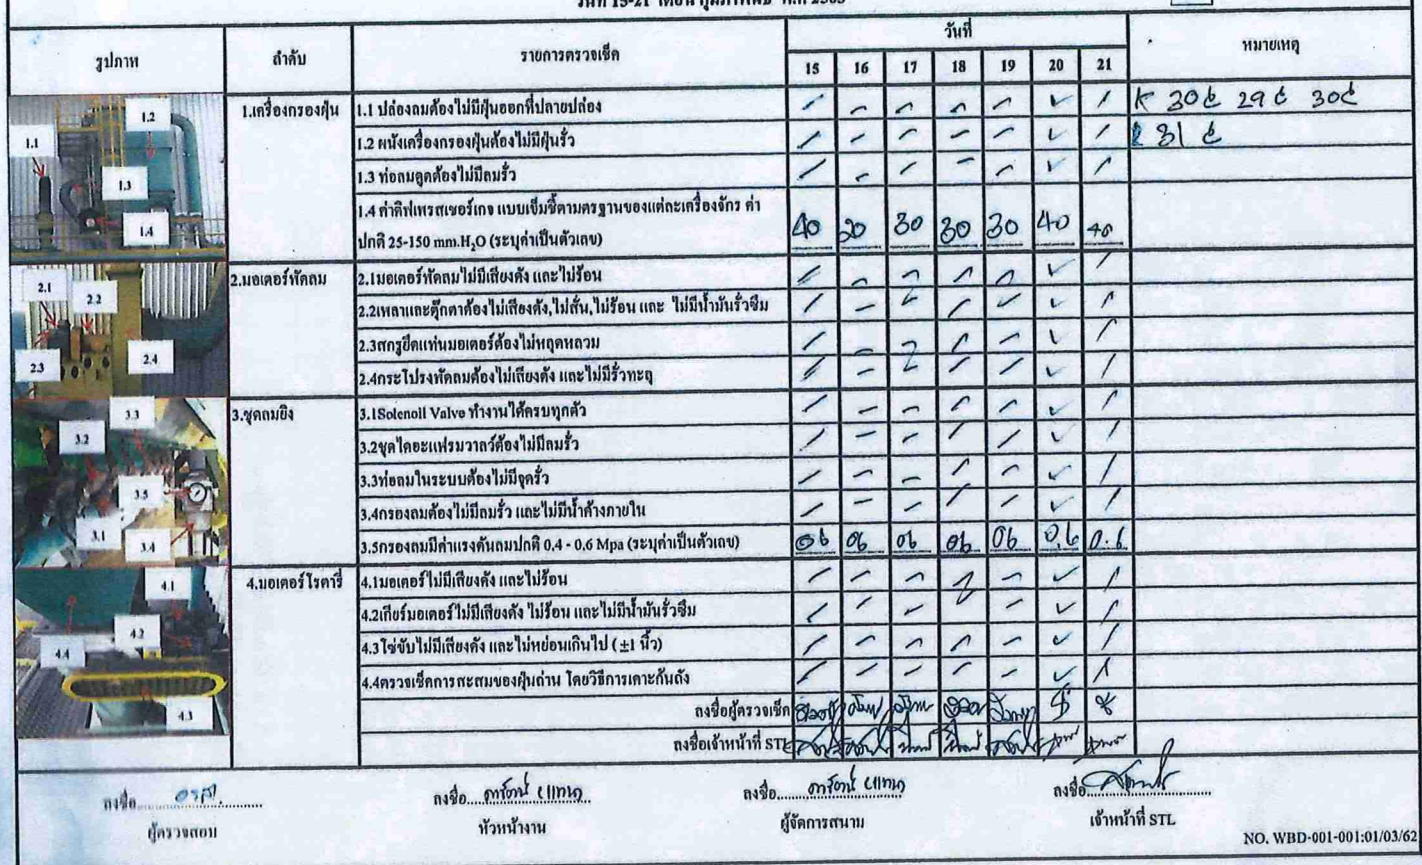 วันที่ 15-21 เดือน กุมภาพันธ์ พ.ศ 2565
รูปภาพ ลำดับ รายการตรวจเช็ค วันที่ หมายเหตุ
15 16 17 18 19 20 21
1.1 1.2 1.3 1.4
1.เครื่องกรองฝุ่น
1.1 ปล่องลมต้องไม่มีฝุ่นออกที่ปลายปล่อง
1.2 ผนังเครื่องกรองฝุ่นต้องไม่มีฝุ่นรั่ว
1.3 ท่อลมดูดต้องไม่มีลมรั่ว
1.4 ค่าดิฟเพรสเชอร์เกจ แบบเข็มชี้ตามตรฐานของแต่ละเครื่องจักร ค่า
ปกติ 25-150 mm.H₂O (ระบุค่าเป็นตัวเลข) 40 20 30 30 30 40 40
2.1 2.2 2.3 2.4
2.มอเตอร์พัดลม
2.1มอเตอร์พัดลมไม่มีเสียงดัง และไม่ร้อน
2.2เพลาและตุ๊กตาต้องไม่เสียงดัง,ไม่สั่น,ไม่ร้อน และ ไม่มีน้ำมันรั่วซึม
2.3สกรูยึดแท่นมอเตอร์ต้องไม่หลุดหลวม
2.4กระโปรงพัดลมต้องไม่เสียงดัง และไม่มีรั่วทะลุ
3.3 3.2 3.5 3.1 3.4
3.ชุดลมยิง
3.1Solenoil Valve ทำงานได้ครบทุกตัว
3.2ชุดไดอะแฟรมวาลว์ต้องไม่มีลมรั่ว
3.3ท่อลมในระบบต้องไม่มีจุดรั่ว
3.4กรองลมต้องไม่มีลมรั่ว และไม่มีน้ำค้างภายใน
3.5กรองลมมีค่าแรงดันลมปกติ 0.4 - 0.6 Mpa (ระบุค่าเป็นตัวเลข) 06 06 06 06 06 0.6 0.6
4.1 4.2 4.4 4.3
4.มอเตอร์โรตารี่
4.1มอเตอร์ไม่มีเสียงดัง และไม่ร้อน
4.2เกียร์มอเตอร์ไม่มีเสียงดัง ไม่ร้อน และไม่มีน้ำมันรั่วซึม
4.3โซ่ขับไม่มีเสียงดัง และไม่หย่อนเกินไป (±1 นิ้ว)
4.4ตรวจเช็คการสะสมของฝุ่นถ่าน โดยวิธีการเคาะก้นถัง
ลงชื่อผู้ตรวจเช็ค
ลงชื่อเจ้าหน้าที่ STL
ลงชื่อ ลงชื่อ ลงชื่อ ลงชื่อ
ผู้ตรวจสอบ หัวหน้างาน ผู้จัดการสนาม เจ้าหน้าที่ STL
NO. WBD-001-001:01/03/62